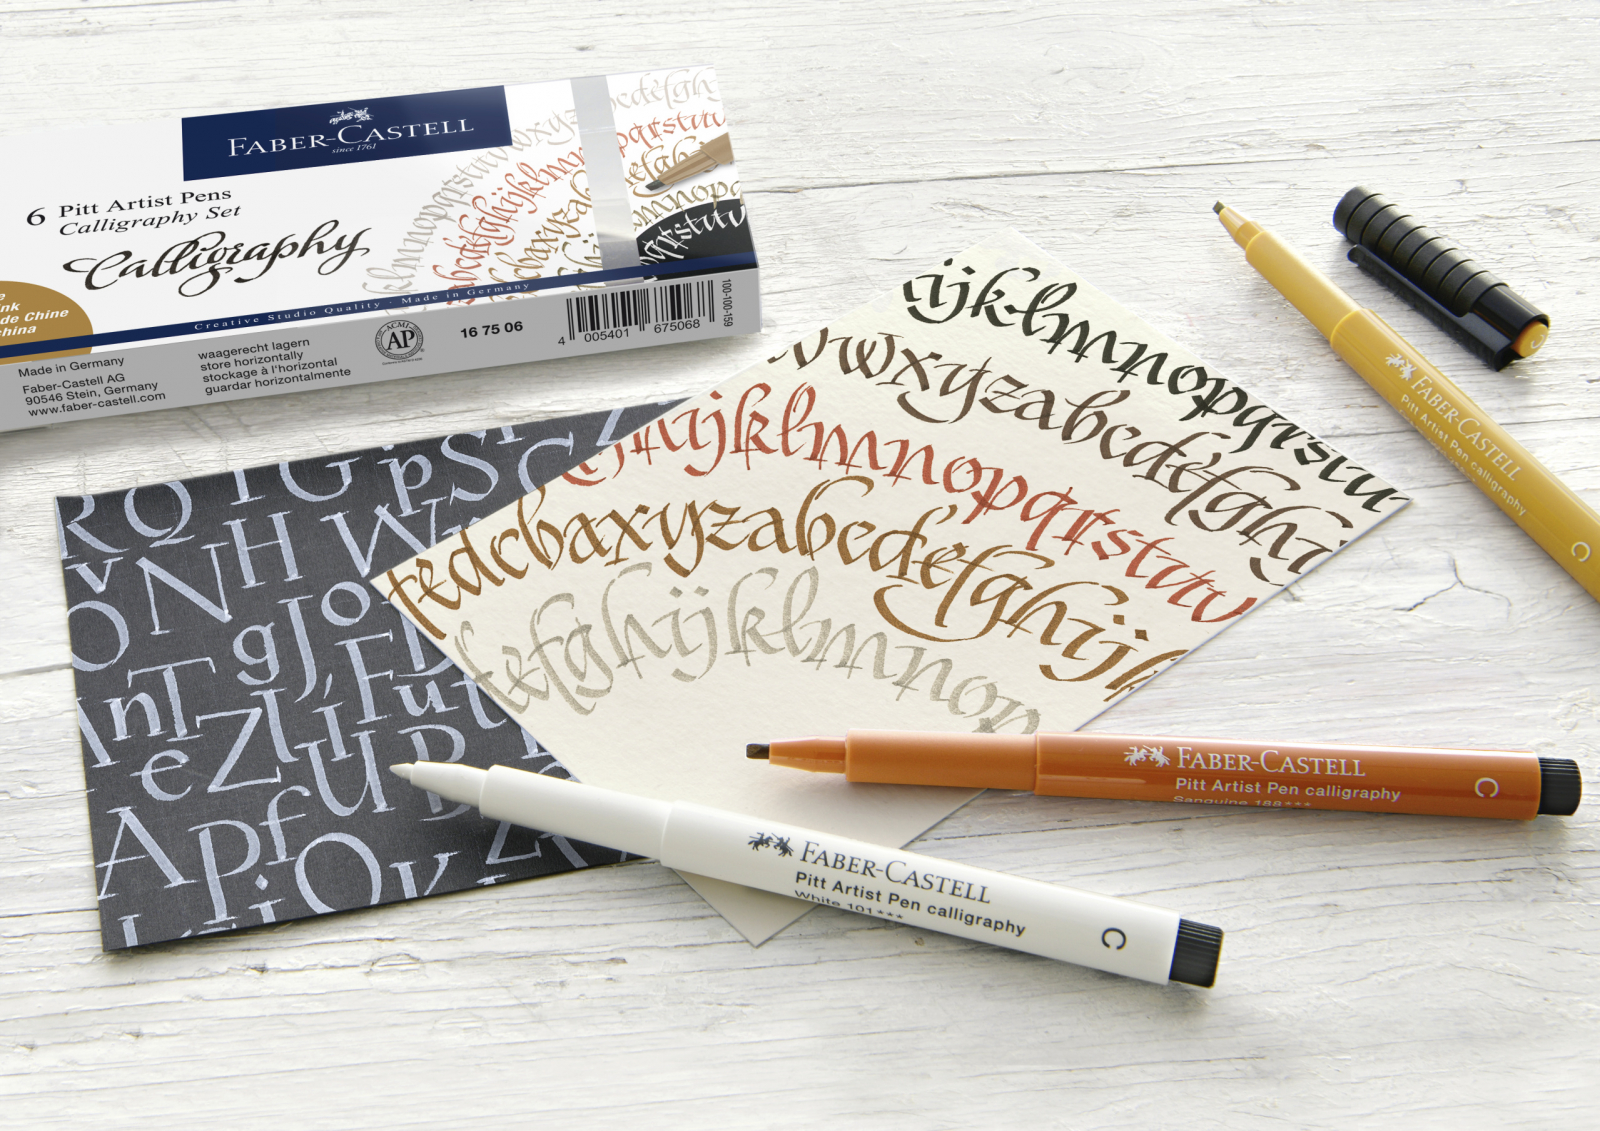 FABER-CASTELL
since 1761
6 Pitt Artist Pens
Calligraphy Set
Calligraphy
de Chine
china
Creative Studio Quality · Made in Germany
Made in Germany
Faber-Castell AG
90546 Stein, Germany
www.faber-castell.com
waagerecht lagern
store horizontally
stockage à l'horizontal
guardar horizontalmente
ACMI
AP
16 75 06
4 005401 675068
100-100-159
ijklmnopqrstu
vwxyzabcdefghi
hijklmnopqrstuv
fedcbaxyzabcdefghij
efghijklmnop
RQTGpSC
ONHW
gJo
nTFut
eZlíUB
APf
iOv
FABER-CASTELL
Pitt Artist Pen calligraphy
C
FABER-CASTELL
Pitt Artist Pen calligraphy
Sanguine 188***
C
FABER-CASTELL
Pitt Artist Pen calligraphy
White 101***
C